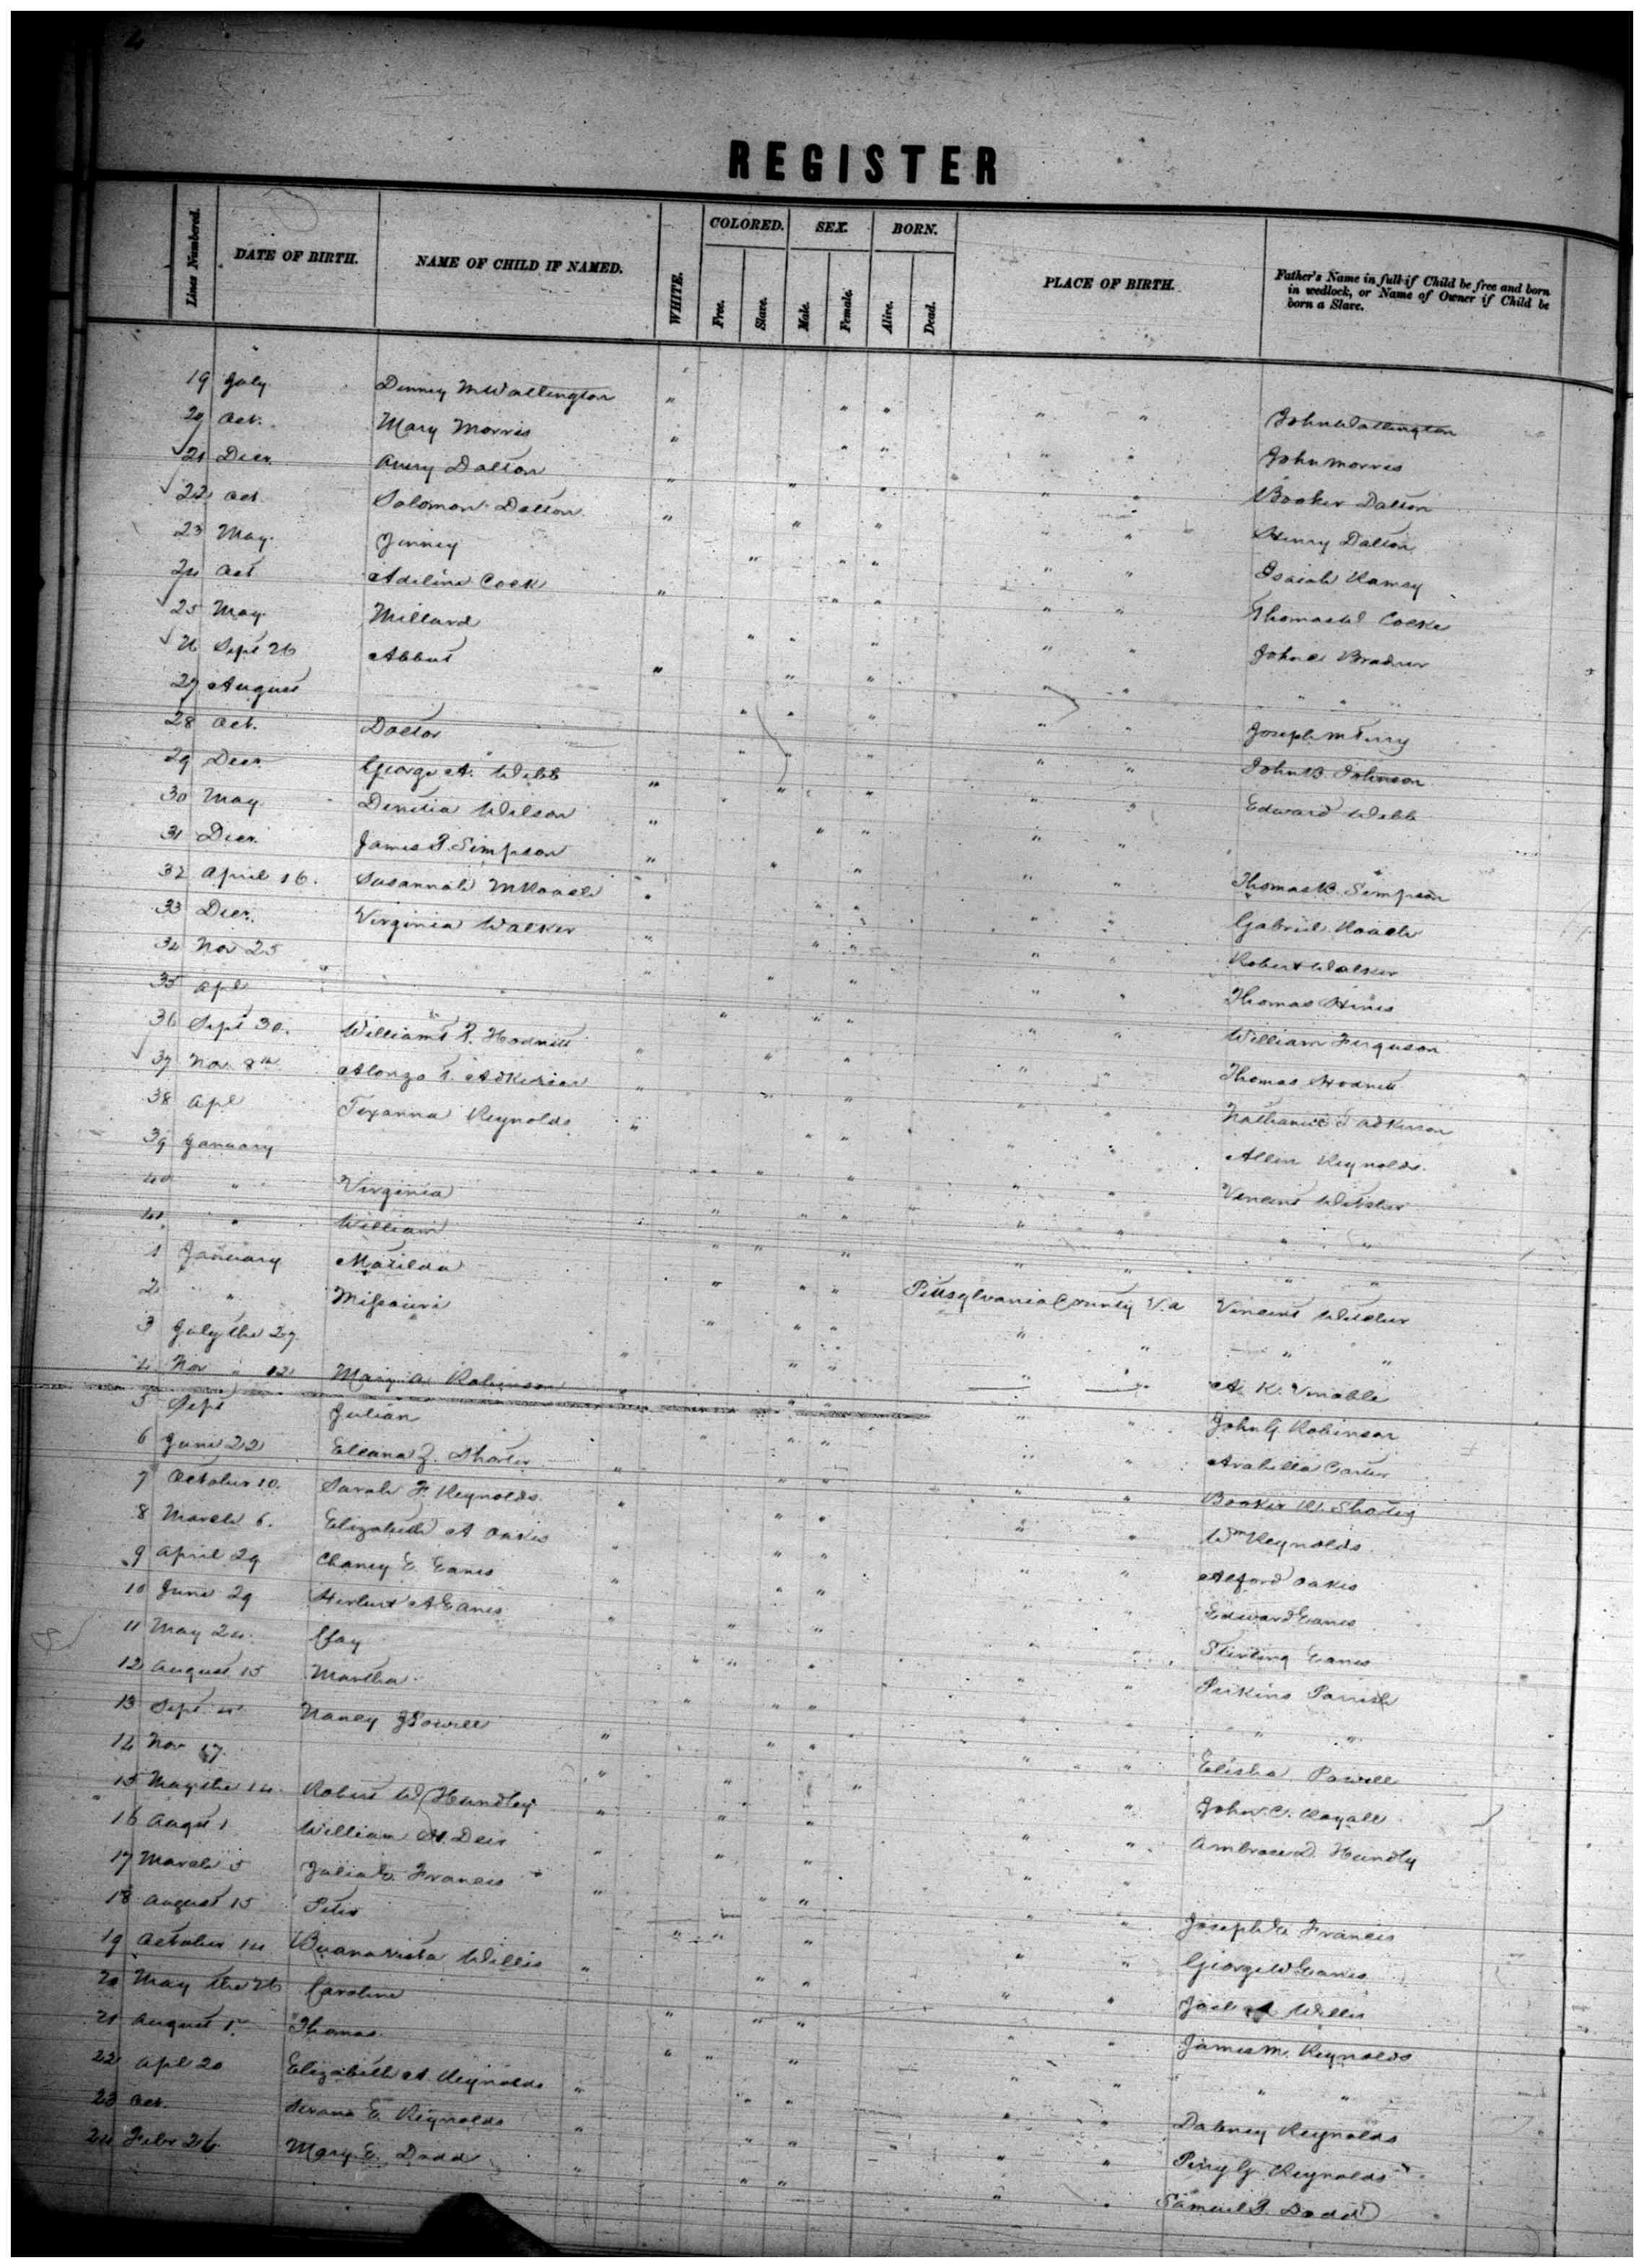 REGISTER
Lines Numbered. DATE OF BIRTH. NAME OF CHILD IF NAMED. WHITE. COLORED. Free. Slave. SEX. Male. Female. BORN. Alive. Dead. PLACE OF BIRTH. Father's Name in full if Child be free and born in wedlock, or Name of Owner if Child be born a Slave.
19 July " " " " " John Wallington
20 Oct. Mary Morris " " " " " John Morris
21 Decr. Avery Dalton " " " " " Booker Dalton
22 Oct Solomon Dalton " " " " " Henry Dalton
23 May Jinney " " " " " Isaiah Ramey
24 Oct Adeline Cock " " " " " Thomas W Cocke
25 May Millard " " " " "
26 Sept 26 " " " " " " "
27 August " " " " " Joseph M Terry
28 Oct. " " " " " John B Johnson
29 Decr. George A. Webb " " " " " Edward Webb
30 May Wilson " " " " "
31 Decr. James T. Simpson " " " " " Thomas B. Simpson
32 April 16. Susannah M Roach " " " " " Gabriel Roach
33 Decr. Virginia Walker " " " " " Robert Walker
34 Nov 25 " " " " " Thomas Hines
35 Apl " " " " " William Ferguson
36 Sept 30. William T. R. Hodnett " " " " " Thomas Hodnett
37 Nov. 8th Alonzo T. Adkerson " " " " " Nathaniel T Adkerson
38 Apl Texanna Reynolds " " " " " Allen Reynolds.
39 January " " " " " Vincent Witcher
40 " Virginia " " " " " " "
41 " William " " " " " " "
1 January Matilda " " " Pittsylvania County V.a Vincent Witcher
2 " Missouri " " " " " " "
3 July the 27 " " " " " A. K. Venable
4 Nov " 12 Mary A Robinson " " " " " John G Robinson
5 Sept Julian " " " " " Arabella Carter
6 June 22 Eleana Z. Shorter " " " " " Booker
7 October 10. Sarah F. Reynolds. " " " " " Wm Reynolds.
8 March 6. Elizabeth A Oakes " " " " " Alford Oakes
9 April 29 Chaney E. Eanes " " " " " Edward Eanes
10 June 29 Herbert A Eanes " " " " Sterling Eanes
11 May 24 " " " " " Perkins Parrish
12 August 15 Martha " " " " " " "
13 Sept 4 Nancy J Powell " " " " " Elisha Powell
14 Nov 17. " " " " " John. C.
15 May the 14 Robert W Hundley " " " " " Ambrose D. Hundly
16 Augu 1 William " " " " "
17 March 5 Julia E. Francis " " " " " Joseph E. Francis
18 August 15 Peter " " " " " George W Eanes
19 October 14 Buanavista Willis " " " " " Willis
20 May the 26 Caroline " " " " " James M. Reynolds
21 August 1. Thomas " " " " " " "
22 Apl 20 Elizabeth A Reynolds " " " " " Dabney Reynolds
23 Oct. E. Reynolds " " " " " Perry G. Reynolds
24 Febr 26 Mary E. Dodd " " " " " Samuel T. Dodd